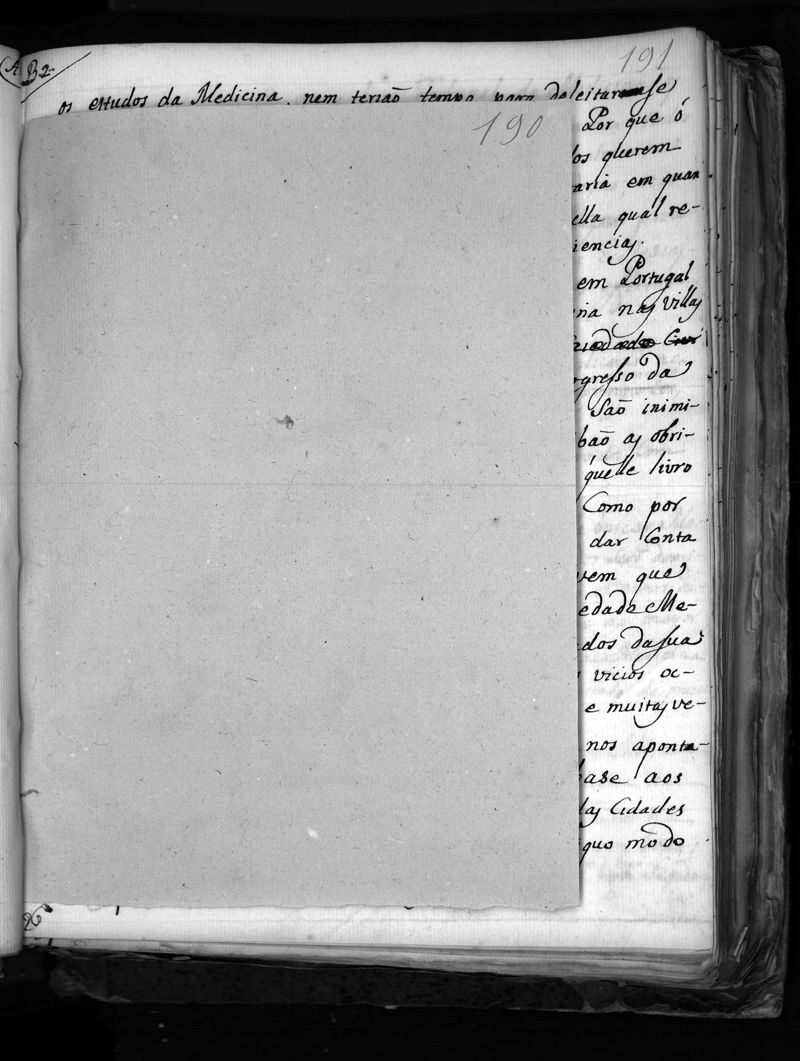 191
B2
os estudos da Medicina, nem terião tempo para deleitarense
190
Por que ó
los querem
aria em quan
ella qual re-
iencias.
em Portugal
ria nas Villas
gresso da
São inimi-
bão as obri-
quelle livro
Como por
dar Conta
vem que
edade Me-
dos da sua
vicios oc-
e muitas ve-
nos aponta-
base aos
las Cidades
quo modo